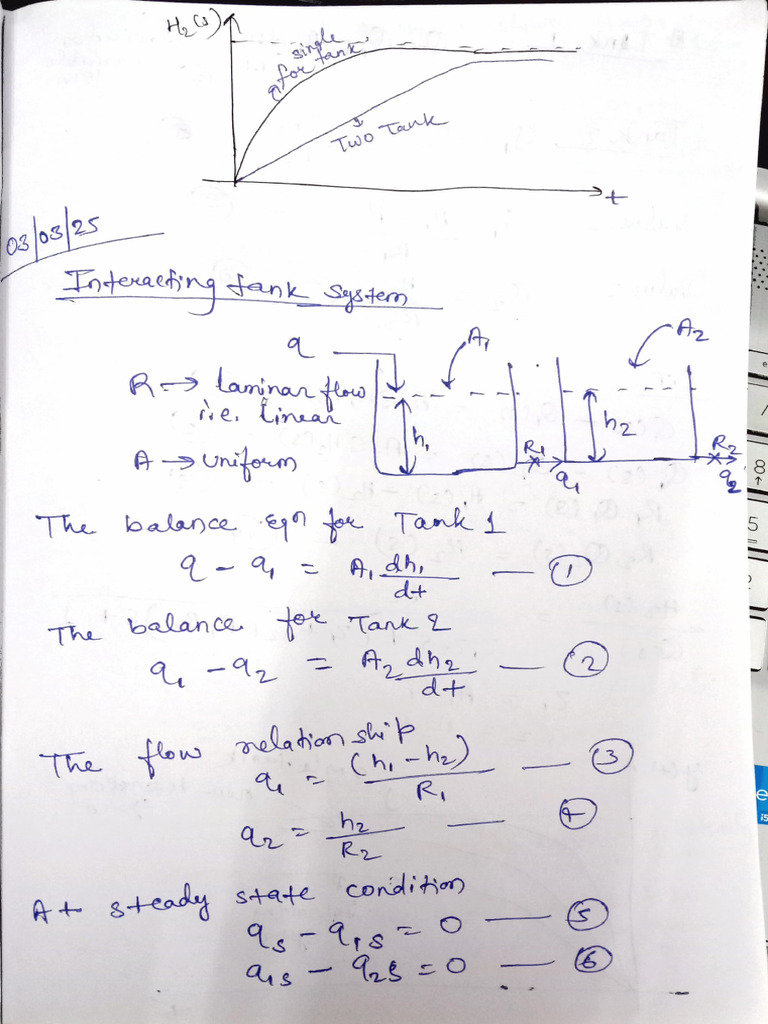 H₂(s)
single
for tank
Two Tank
t
03/03/25
Interacting tank system
q
A₁
A₂
R → Laminar flow
i.e. linear
A → uniform
h₁
h₂
R₁
q₁
R₂
q₂
The balance eqn for Tank 1
q - q₁ = A₁ dh₁/dt — ①
The balance for Tank 2
q₁ - q₂ = A₂ dh₂/dt — ②
The flow relationship
q₁ = (h₁ - h₂)/R₁ — ③
q₂ = h₂/R₂ — ④
At steady state condition
qs - q₁s = 0 — ⑤
q₁s - q₂s = 0 — ⑥
8
5
e
i5